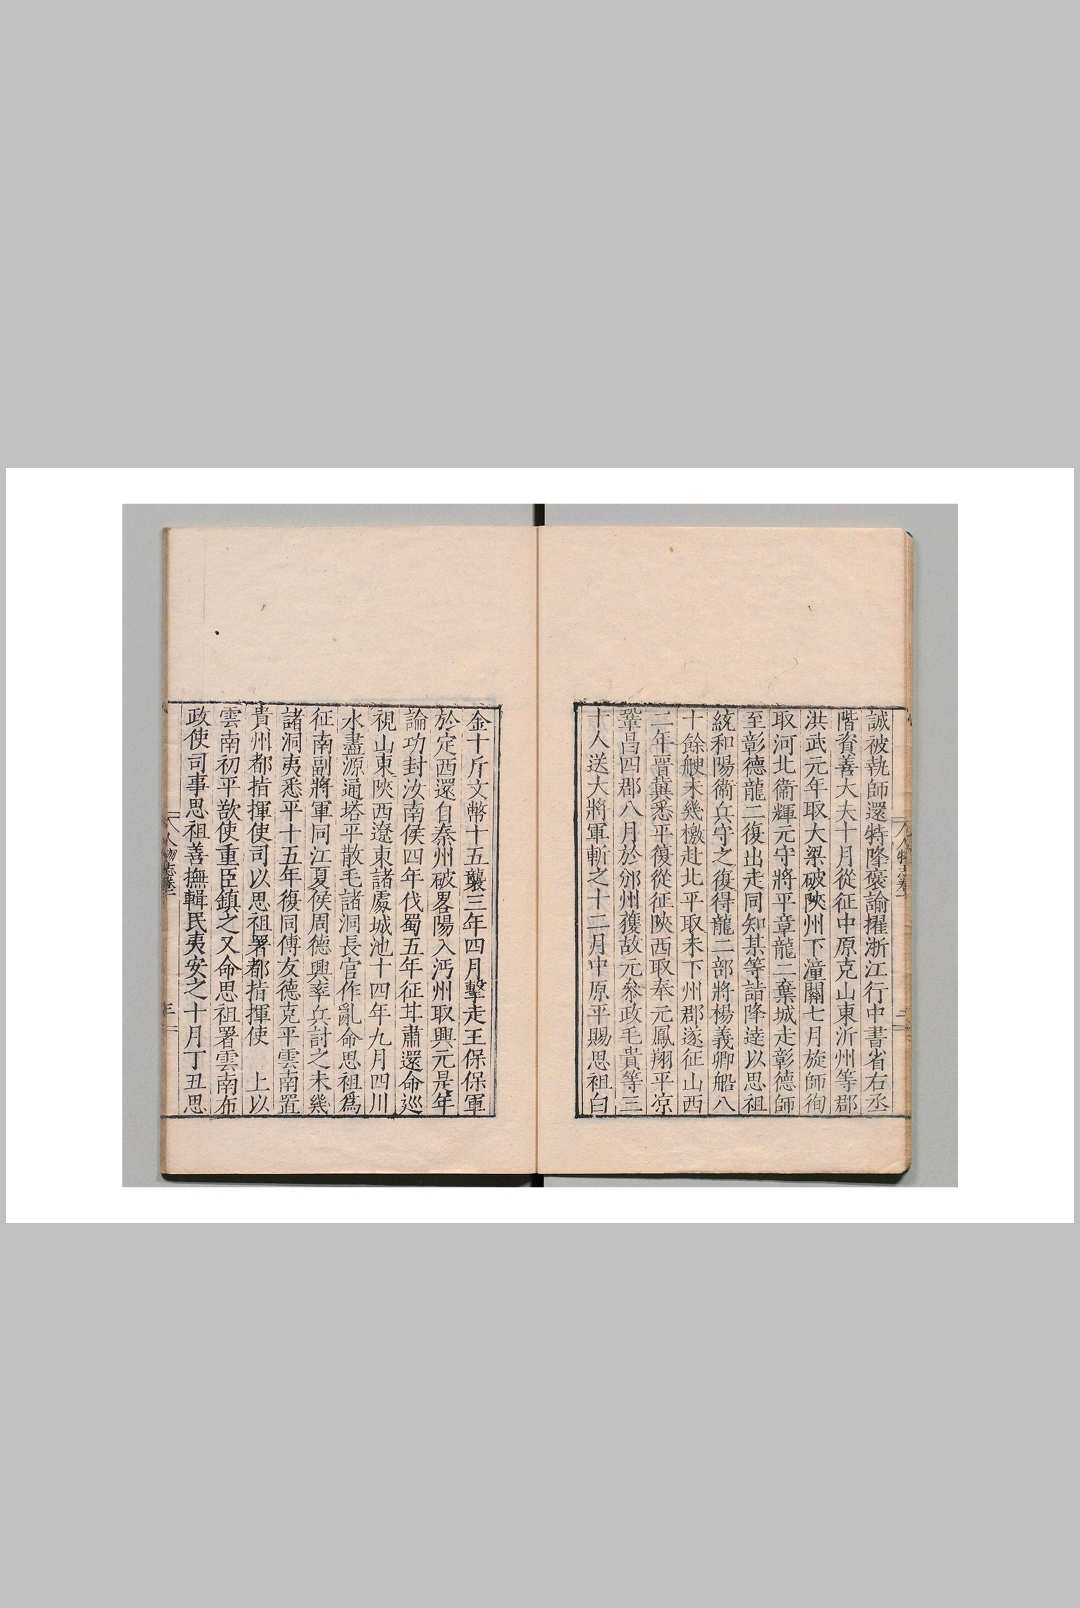 誠被執師還特隆褒諭擢浙江行中書省右丞
階資善大夫十月從征中原克山東沂州等郡
洪武元年取大梁破陝州下潼關七月旋師徇
取河北衞輝元守將平章龍二棄城走彰德師
至彰德龍二復出走同知某等詣降逹以思祖
統和陽衞兵守之復得龍二部將楊義卿船八
十餘艘未幾檄赴北平取未下州郡遂征山西
二年晋冀悉平復從征陝西取奉元鳳翔平凉
鞏昌四郡八月於邠州獲故元叅政毛貴等三
十人送大將軍斬之十二月中原平賜思祖白
金十斤文幣十五襲三年四月擊走王保保軍
於定西還自秦州破畧陽入沔州取興元是年
論功封汝南侯四年伐蜀五年征甘肅還命巡
視山東陝西遼東諸處城池十四年九月四川
水盡源通塔平散毛諸洞長官作亂命思祖爲
征南副將軍同江夏侯周德興率兵討之未幾
諸洞夷悉平十五年復同傅友德克平雲南置
貴州都指揮使司以思祖署都指揮使 上以
雲南初平欲使重臣鎮之又命思祖署雲南布
政使司事思祖善撫輯民夷安之十月丁丑思
人物志卷二